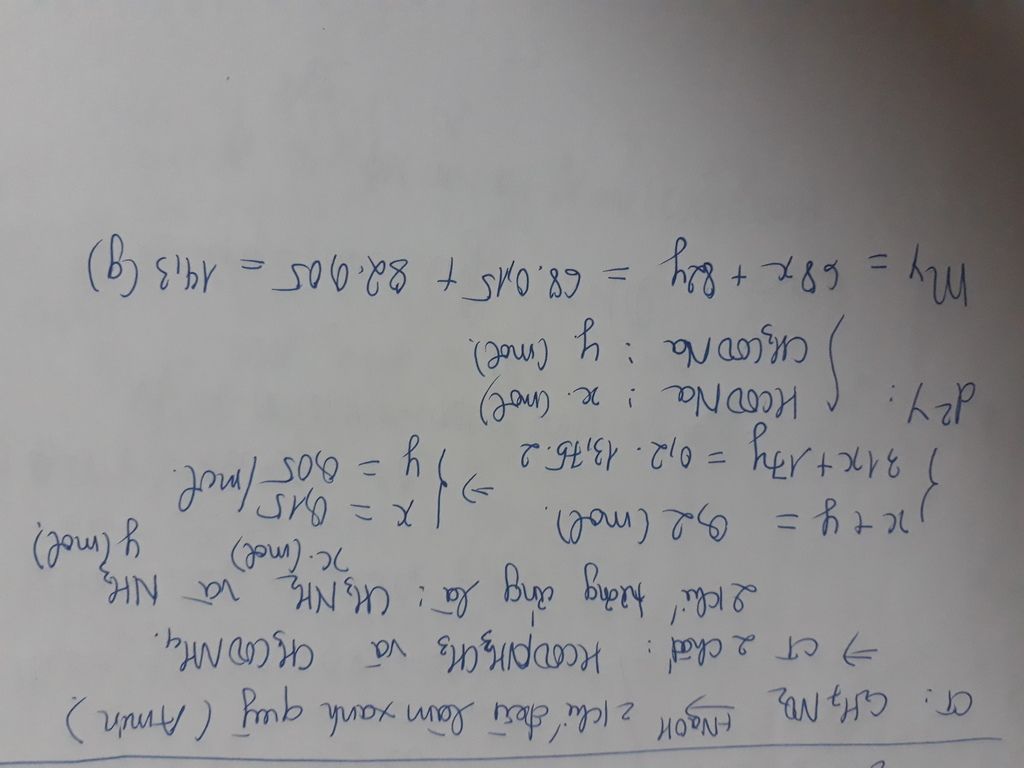 CT: C₂H₇NO₂ +NaOH → 2 khí đều làm xanh quỳ (Amin).
⇒ CT 2 chất: HCOONH₃CH₃ và CH₃COONH₄.
2 khí tương ứng là: CH₃NH₂ và NH₃
x (mol) y (mol)
{ x + y = 0,2 (mol). ⇒ { x = 0,15
31x + 17y = 0,2 . 13,75.2 y = 0,05 (mol.
d²Y: { HCOONa : x (mol)
CH₃COONa : y (mol).
mY = 68x + 82y = 68.0,15 + 82.0,05 = 14,3 (g)